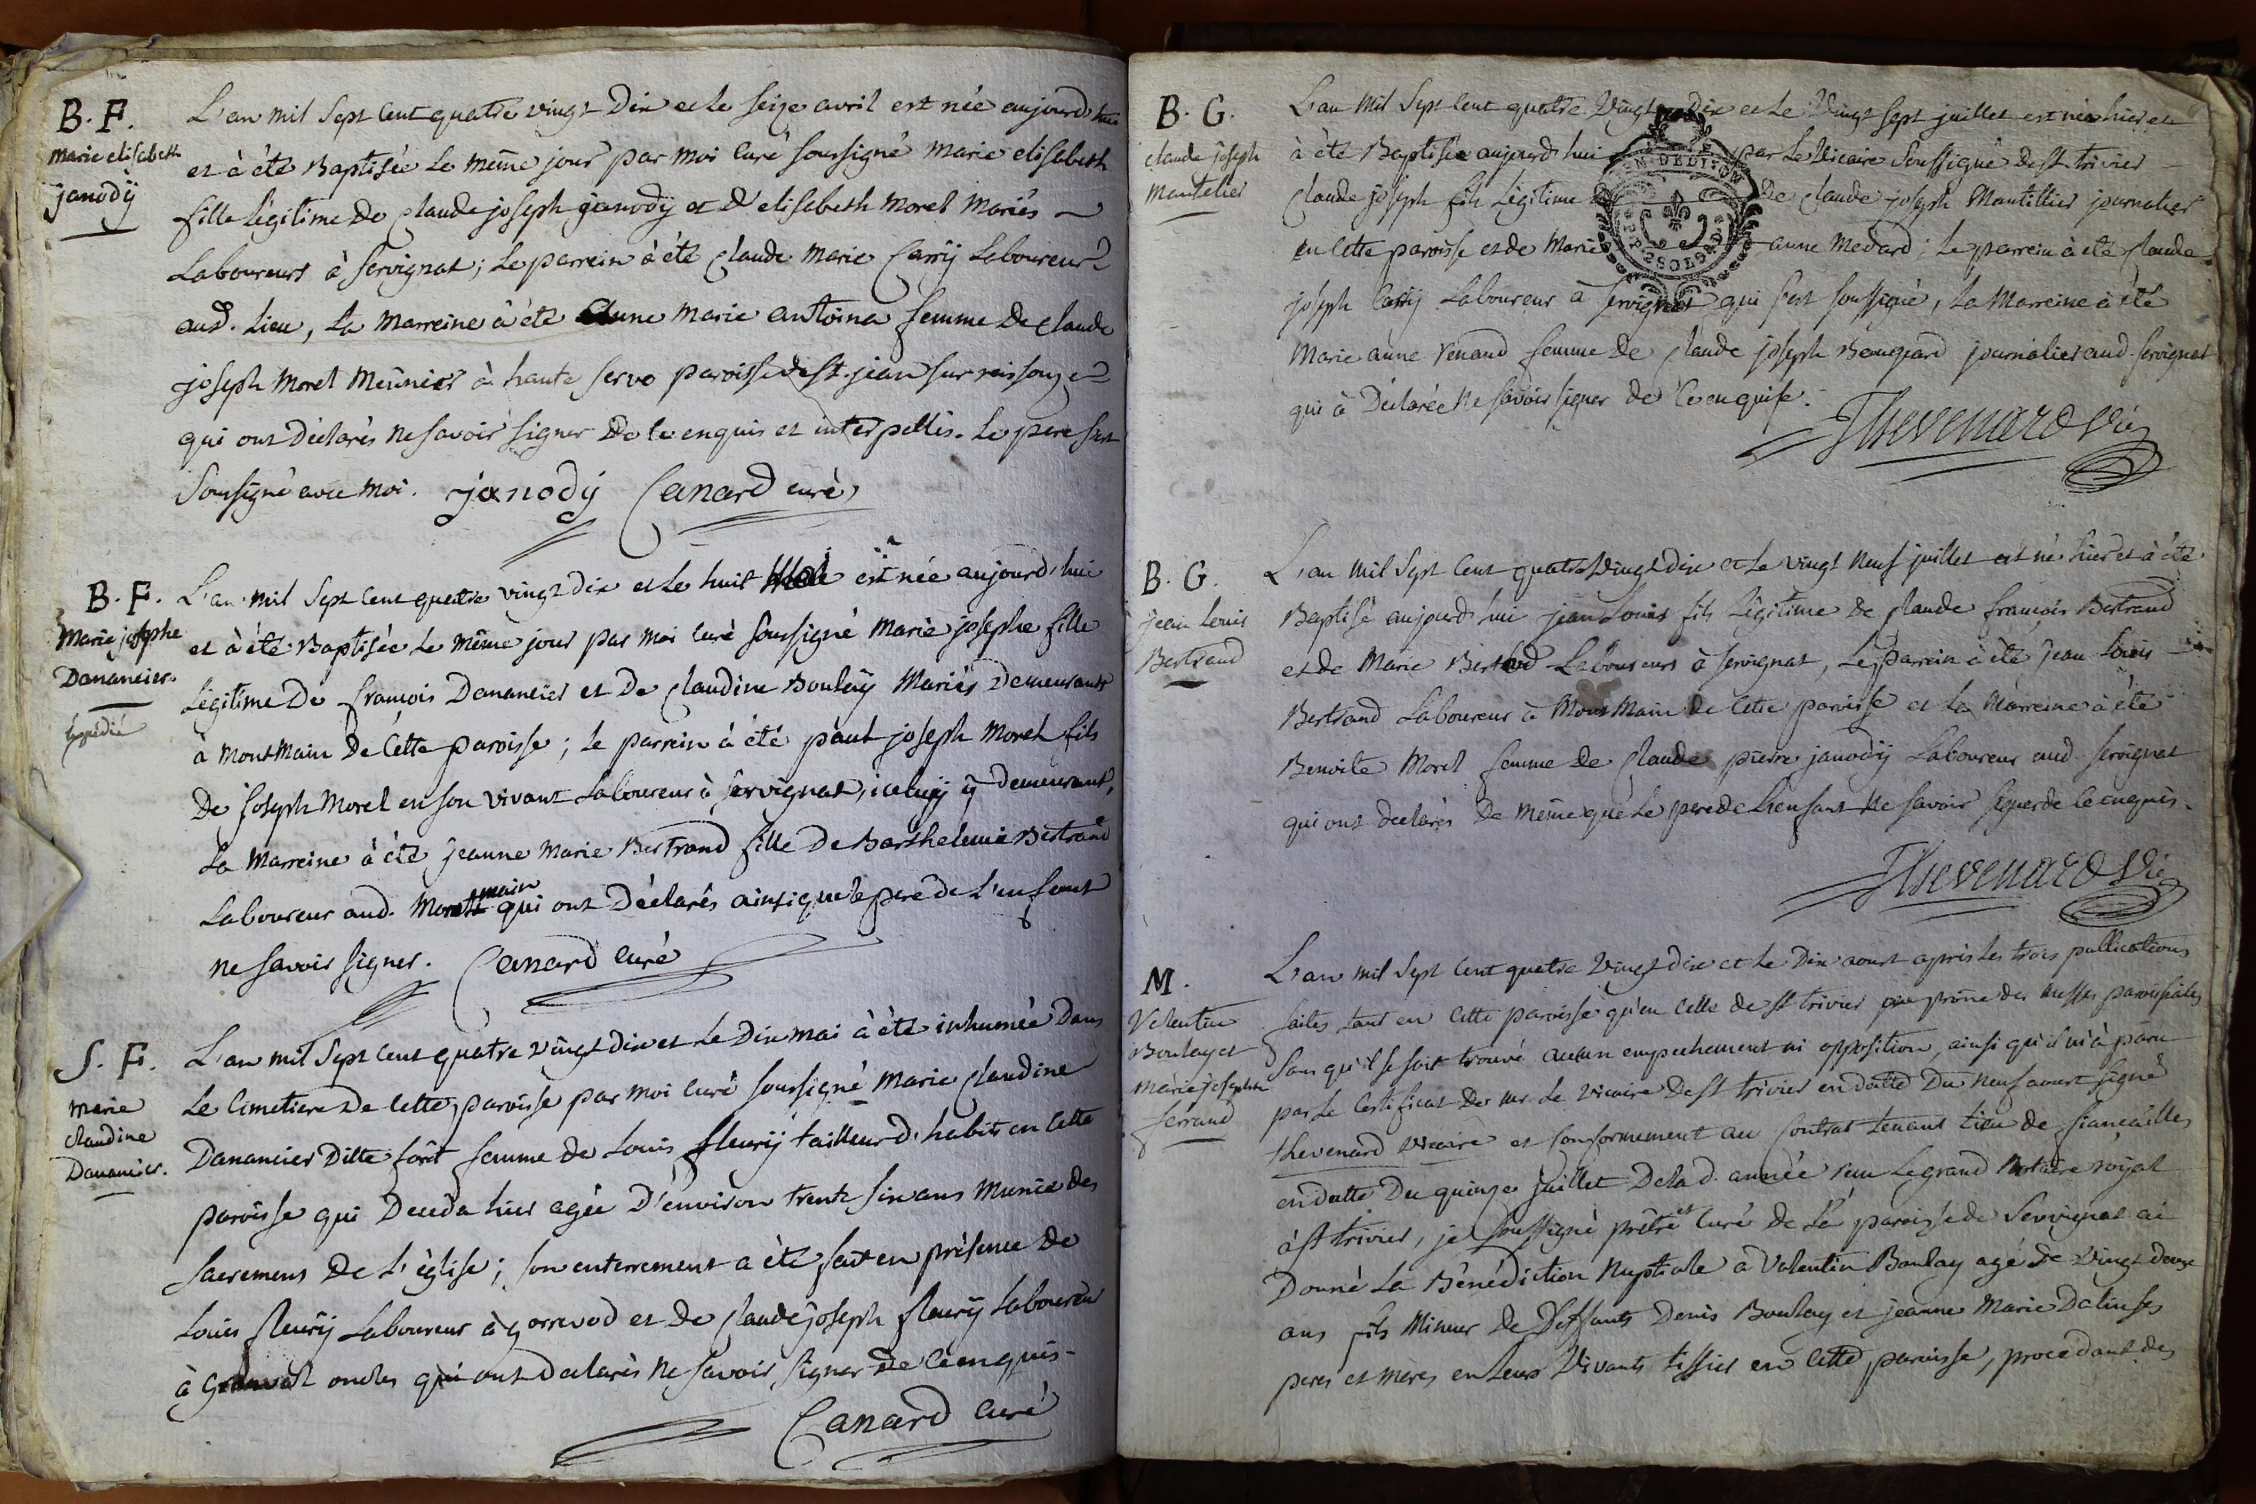 B. F.
marie elisabeth
janodÿ
L'an mil sept cent quatre vingt dix et le seize avril est née aujourd'hui
et à été Baptisée le même jour par moi curé soussigné marie elisabeth
fille légitime de Claude joseph janodÿ et d'elisabeth Morel mariés
Laboureurs à servignat; le parrein à été Claude marie Carrÿ Laboureur
aud. lieu, la marreine à été anne marie antoina femme de Claude
joseph morel meûnier à haute serve paroisse de st. jean sur reissouze
qui ont déclarés ne savoir signer de ce enquis et interpellés. le pere s'est
soussigné avec moi. janodÿ Canard curé
B. F.
marie josephe
Danancier.
expédié
L'an mil sept cent quatre vingt dix et le huit est née aujourd'hui
et à été Baptisée le même jour par moi curé soussigné marie josephe fille
légitime de françois Dananciér et de Claudine Boulaÿ mariés demeurants
à montmain de cette paroisse; le parrein à été paul joseph morel fils
de joseph morel en son vivant laboureur à servignat, iceluÿ ÿ demeurant,
la marreine à été jeanne marie Bertrand fille de Barthelemie Bertrand
laboureur aud. main qui ont déclarés ainsi que le pere de l'enfant
ne savoir signer. Canard curé
S. F.
marie
claudine
Dananciér.
L'an mil sept cent quatre vingt dix et le dix mai à été inhumée dans
le cimetiere de cette paroisse par moi curé soussigné marie Claudine
Dananciér ditte forêt femme de Louis fleurÿ tailleur d'habits en cette
paroisse qui deceda hier agée d'environ trente six ans munie des
sacremens de l'église; son enterrement a été fait en présence de
Louis fleurÿ laboureur à gorrevod et de Claude joseph fleurÿ laboureur
à oncles qui ont declarés ne savoir signer de ce enquis.
Canard curé
B. G.
claude joseph
mantelier
L'an mil sept cent quatre vingt dix et le vingt sept juillet est né hier et
à été Baptisé aujourd'hui par le vicaire soussigné de st. trivier
Claude joseph fils légitime de Claude joseph Mantillier journalier
en cette paroisse et de Marie anne Medard; le parrein à été Claude
joseph Carrÿ laboureur à servignat qui s'est soussigné, la marreine à été
marie anne renaud femme de Claude joseph journalier aud. servignat
qui à déclarée ne savoir signer de ce enquise.
Thevenard Vic
B. G.
jean Louis
Bertrand
L'an mil sept cent quatre vingt dix et le vingt neuf juillet est né hier et à été
Baptisé aujourd'hui jean Louis fils légitime de Claude françois Bertrand
et de marie laboureurs à servignat, le parrein à été jean Louis
Bertrand laboureur à montmain de cette paroisse et la marreine à été
Benoite Morel femme de Claude pierre janodÿ laboureur aud. servignat
qui ont declarés de même que le pere de l'enfant ne savoir signer de ce enquis.
Thevenard Vic
M.
Valentin
Boulay et
marie josephte
ferrand
L'an mil sept cent quatre vingt dix et le dix aoust après les trois publications
faites tant en cette paroisse qu'en celle de st trivier prône des messes paroissiales
sans qu'il se soit trouvé aucun empechement ni opposition, ainsi qu'il m'à paru
par le certificat de mr. le vicaire de st trivier en datte du neuf aoust signé
thevenard vicaire et conformement au contrat tenant lieu de fiancailles
en datte du quinze juillet de lad. année legrand notaire royal
à st trivier, je soussigné prêtre et curé de la paroisse de servignat ai
donné la bénédiction nuptiale a Valentin Boulay agé de vingt deux
ans fils mineur de deffunts Denis Boulay et jeanne marie
peres et meres en leurs vivants tissier en cette paroisse, procedant des